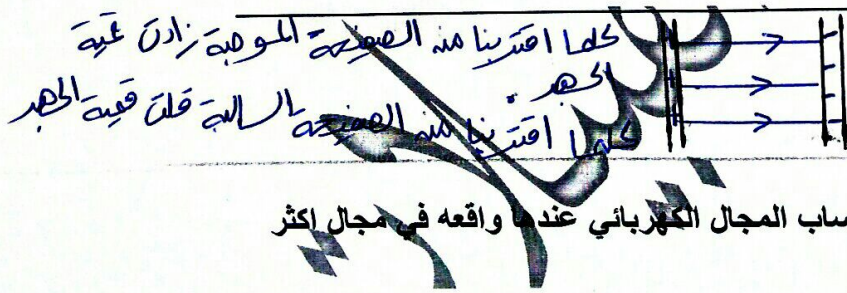 كلما اقتربنا من الصفيحة الموجبة زادت قيمة
الجهد
كلما اقتربنا من الصفيحة السالبة قلت قيمة الجهد
ساب المجال الكهربائي عندها واقعه في مجال اكثر